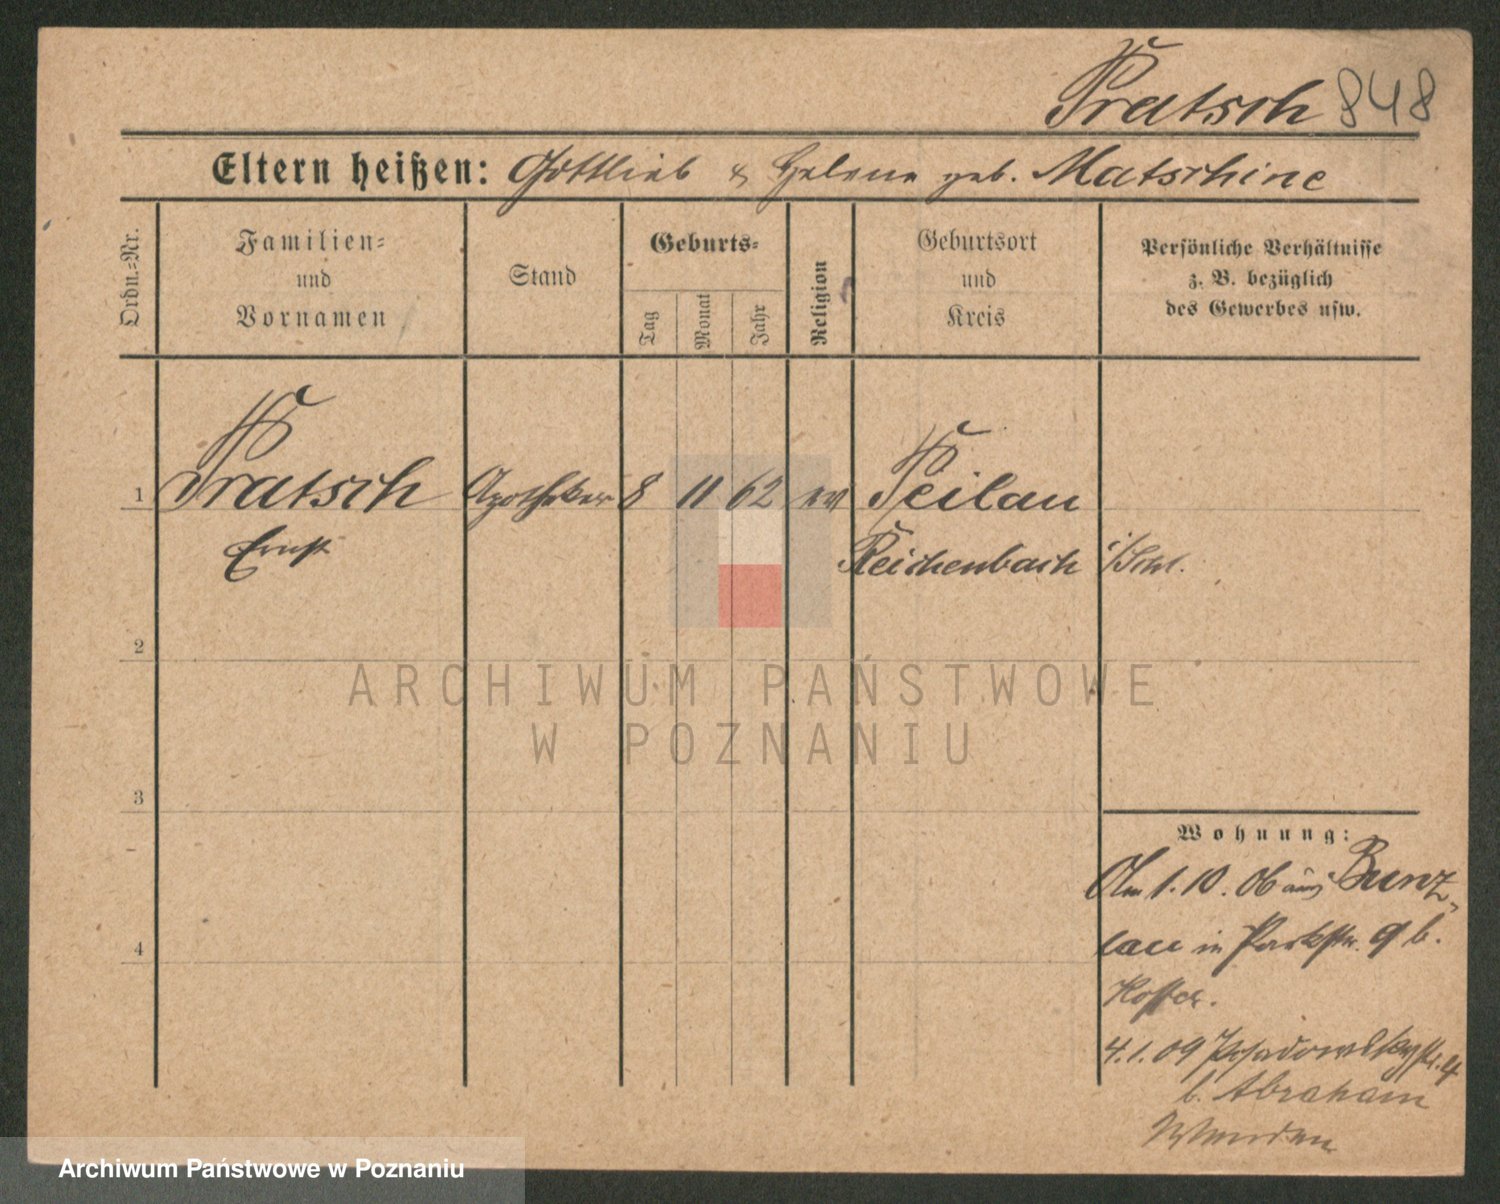 Pratsch 848
Eltern heißen: Gottlieb & Helene geb. Matschine
Ordn.=Nr.
Familien=
und
Vornamen
Stand
Geburts=
Tag
Monat
Jahr
Religion
Geburtsort
und
Kreis
Persönliche Verhältnisse
z. B. bezüglich
des Gewerbes usw.
1 Pratsch Apotheker 8 11 62 ev Peilau
Ernst Reichenbach i/Schl.
2
3
4
Wohnung:
Am 1.10.06 aus Bunz-
lau in Parkstr. 9 b.
4.1.09 Posadowskystr.
b. Abraham
ARCHIWUM PAŃSTWOWE
W POZNANIU
Archiwum Państwowe w Poznaniu